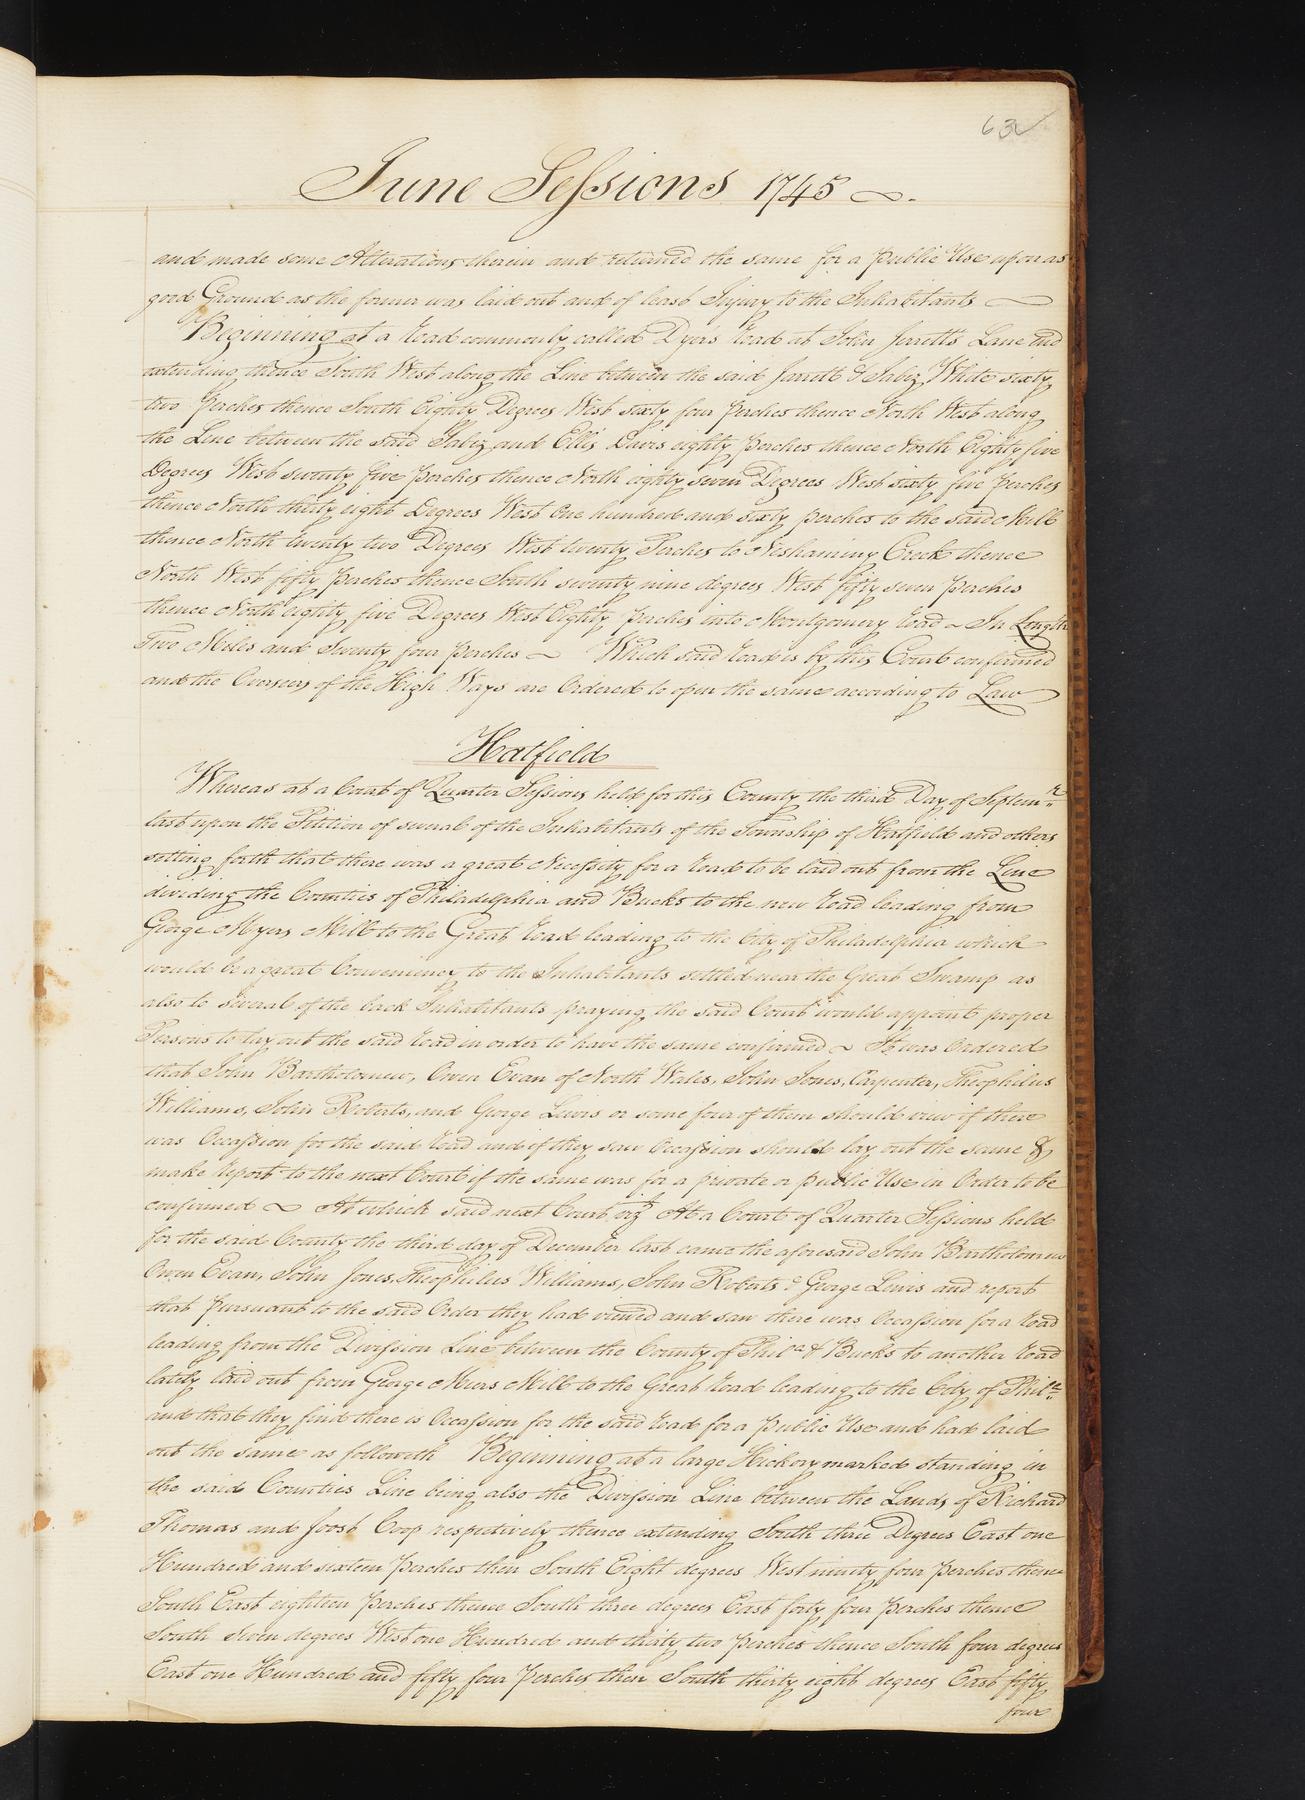 63
June Sessions 1745
and made some Alterations therein and returned the same for a Public Use upon as
good Ground as the former was laid out and of least Injury to the Inhabitants
Beginning at a Road commonly called Dyer's Road at John Jerrett's Lane End
extending thence South West along the Line between the said Jarrett & Jabez White sixty
two Perches thence South Eighty Degrees West sixty four Perches thence North West along
the Line between the said Jabez and Ellis Davis eighty Perches thence North Eighty five
Degrees West seventy five Perches thence North eighty seven Degrees West sixty five Perches
thence North thirty eight Degrees West One hundred and sixty perches to the said Mill
thence North twenty two Degrees West twenty Perches to Neshaminy Creek thence
North West fifty Perches thence South seventy nine degrees West fifty seven Perches
thence North eighty five Degrees West Eighty Perches into Montgomery Road ~ In Length
Two Miles and Twenty four Perches ~ Which said Road is by this Court confirmed
and the Overseers of the High Ways are Ordered to open the same according to Law
Hatfield
Whereas at a Court of Quarter Sessions held for this County the third Day of Septemr
last upon the Petition of several of the Inhabitants of the Township of Hatfield and others
setting forth that there was a great Necessity for a Road to be laid out from the Line
dividing the Counties of Philadelphia and Bucks to the new Road leading from
George Myers Mill to the Great Road leading to the City of Philadelphia which
would be a great Conveniency to the Inhabitants settled near the Great Swamp as
also to several of the back Inhabitants praying the said Court would appoint proper
Persons to lay out the said Road in order to have the same confirmed ~ It was Ordered
that John Bartholomew, Owen Evan of North Wales, John Jones, Carpenter, Theophilus
Williams, John Roberts, and George Lewis or some four of them should view if there
was Occassion for the said Road and if they saw Occassion should lay out the same &
make Report to the next Court if the same was for a private or public Use in Order to be
confirmed ~ At which said next Court viz At a Court of Quarter Sessions held
for the said County the third day of December last came the aforesaid John Bartholomew
Owen Evan, John Jones, Theophilus Williams, John Roberts & George Lewis and report
that pursuant to the said Order they had viewed and saw there was Occassion for a Road
leading from the Division Line between the County of Phila & Bucks to another Road
lately laid out from George Miers Mill to the Great Road leading to the City of Phila
and that they find there is Occassion for the said Road for a Public Use and had laid
out the same as followeth Beginning at a large Hickory marked standing in
the said Counties Line being also the Division Line between the Lands of Richard
Thomas and Joost Coop respectively thence extending South three Degrees East one
Hundred and sixteen Perches then South Eight degrees West ninety four Perches thence
South East eighteen Perches thence South three degrees East forty four Perches thence
South seven degrees West one Hundred and thirty two Perches thence South four degrees
East one Hundred and fifty four Perches then South thirty eight degrees East fifty
four